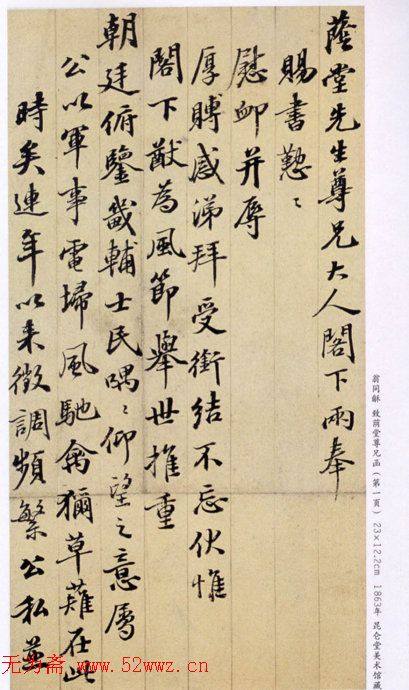 蔭堂先生尊兄大人閣下兩奉
賜書懃〻
慰卹并辱
厚賻感涕拜受銜結不忘伏惟
閣下猷為風節舉世推重
朝廷俯鑒畿輔士民喁〻仰望之意屬
公以軍事電埽風馳禽獮草薙在此
時矣連年以來徵調頻繁公私並
翁同龢 致荫堂尊兄函(第一页) 23×12.2cm 1863年 昆仑堂美术馆藏
无为斋 www.52wwz.cn